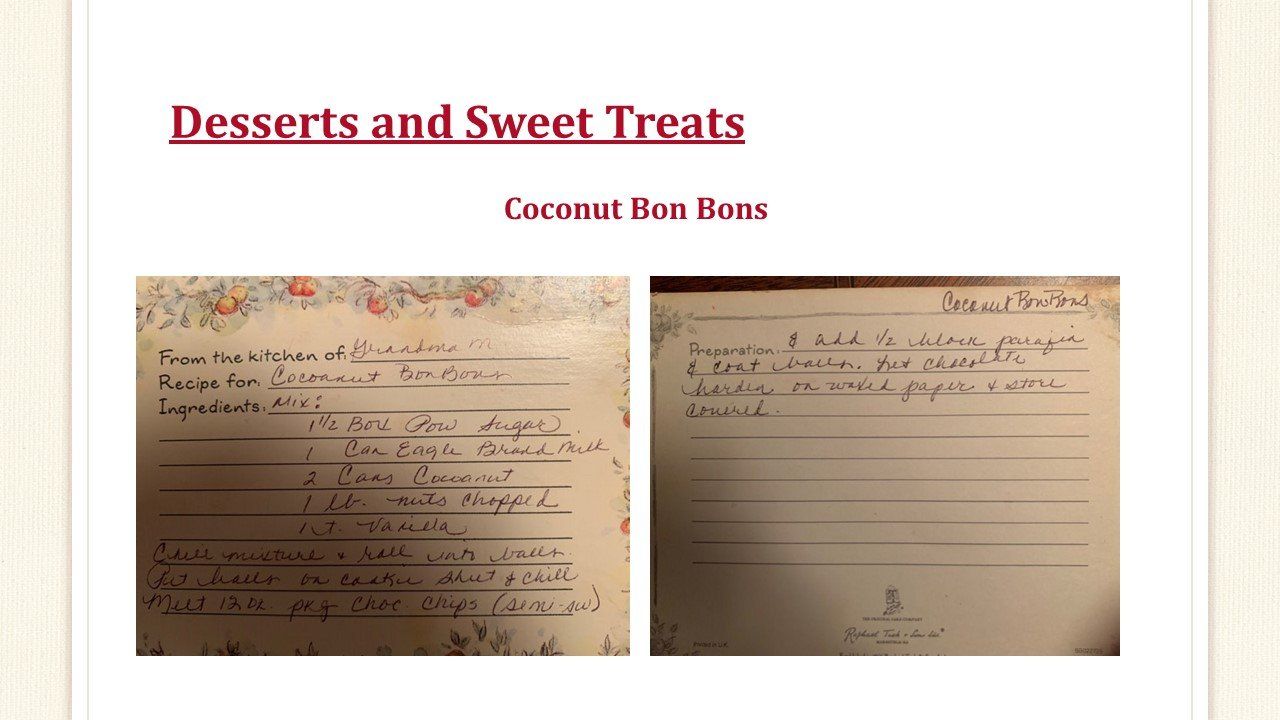 Desserts and Sweet Treats
Coconut Bon Bons
From the kitchen of: Grandma M
Recipe for: Cocoanut BonBons
Ingredients: Mix:
1 1/2 Box Pow Sugar
1 Can Eagle Brand Milk
2 Cans Cocoanut
1 lb. nuts chopped
1 t. Vanilla
Chill mixture & roll into balls.
Put balls on cookie sheet & chill
Melt 12 oz. pkg choc chips (semi-sw)
Coconut BonBons
Preparation: & add 1/2 block parafin
& coat balls. Let chocolate
harden on waxed paper & store
covered.
THE ORIGINAL CARD COMPANY
Raphael Tuck & Sons Ltd®
Printed in U.K.